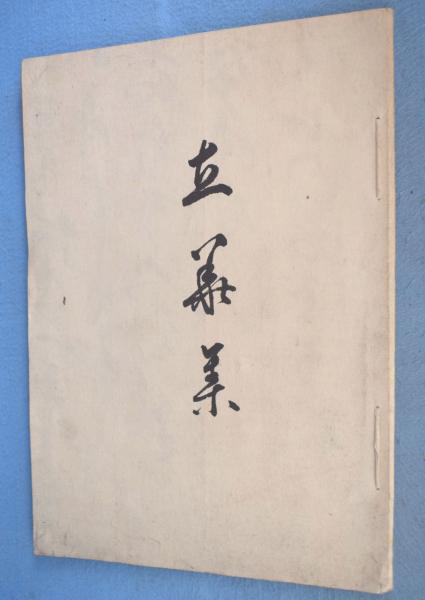 立華集